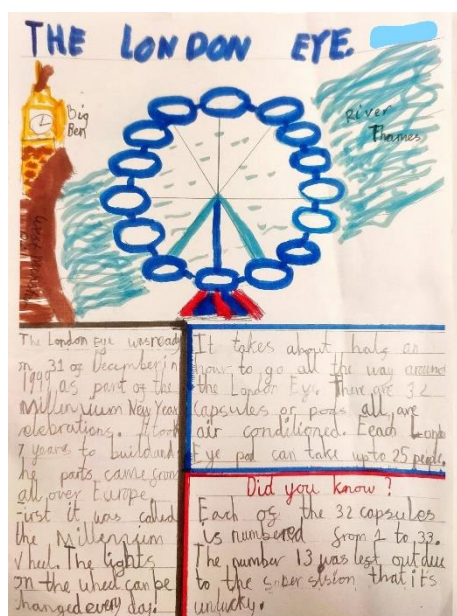 THE LONDON EYE.
Big
Ben
River
Thames
The London eye was ready
on 31 of December in
1999 as part of the
Millennium New Year
elebrations. It took
7 years to build and
he parts came from
all over Europe.
First it was called
the Millennium
wheel. The lights
on the wheel can be
hanged every day.
It takes about half an
hour to go all the way around
the London Eye. There are 32
capsules or pods all are
air conditioned. Each
Eye pod can take up to 25 people.
Did you know?
Each of the 32 capsules
is numbered from 1 to 33.
The number 13 was left out due
to the that it's
unlucky.